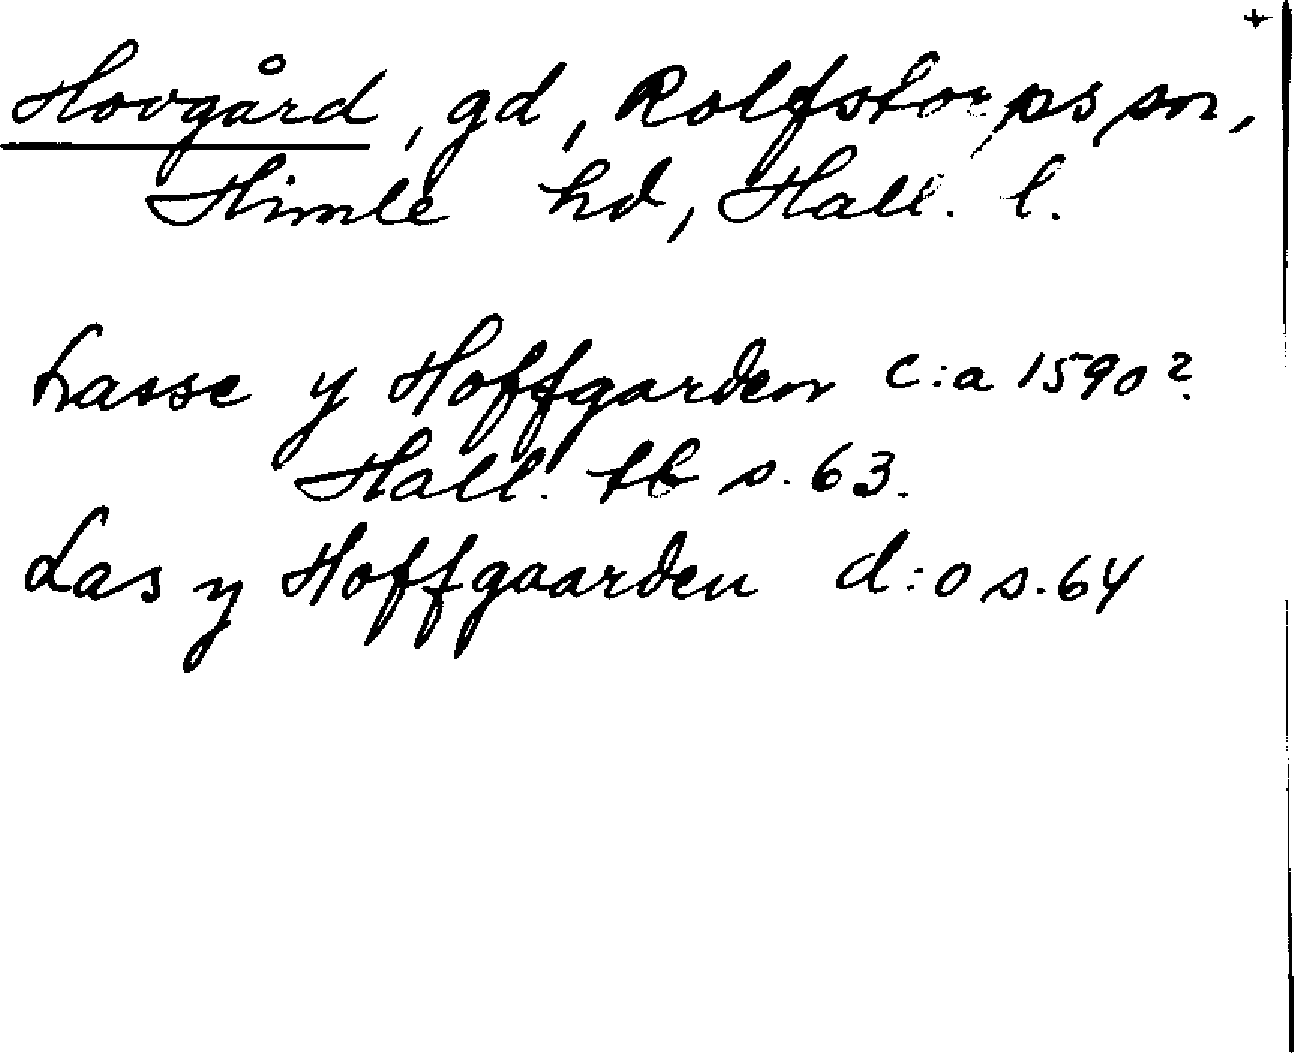 +
Hovgård, gd, Rolfstorps sn,
Himle hd, Hall. l.
Lasse y Hoffgarden c:a 1590?
Hall. tb s. 63.
Las y Hoffgaarden d:o s. 64